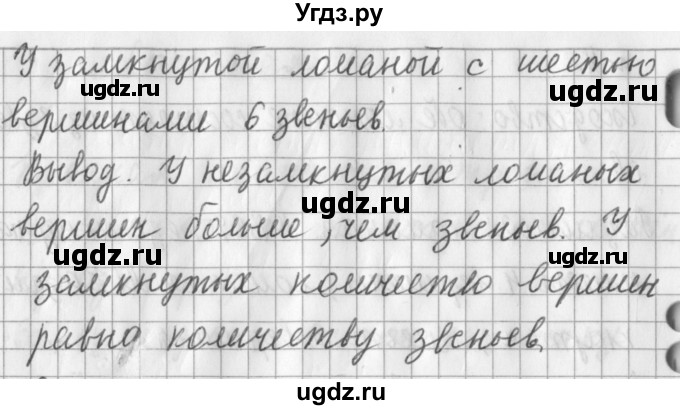 Угдз.ру
У замкнутой ломаной с шестью
вершинами 6 звеньев.
Вывод. У незамкнутых ломаных
вершин больше, чем звеньев. У
замкнутых количество вершин
равно количеству звеньев.
ugdz.ru
ugdz.ru
ugdz.ru
ugdz.ru
ugdz.ru
ugdz.ru
ugdz.ru
ugdz.ru